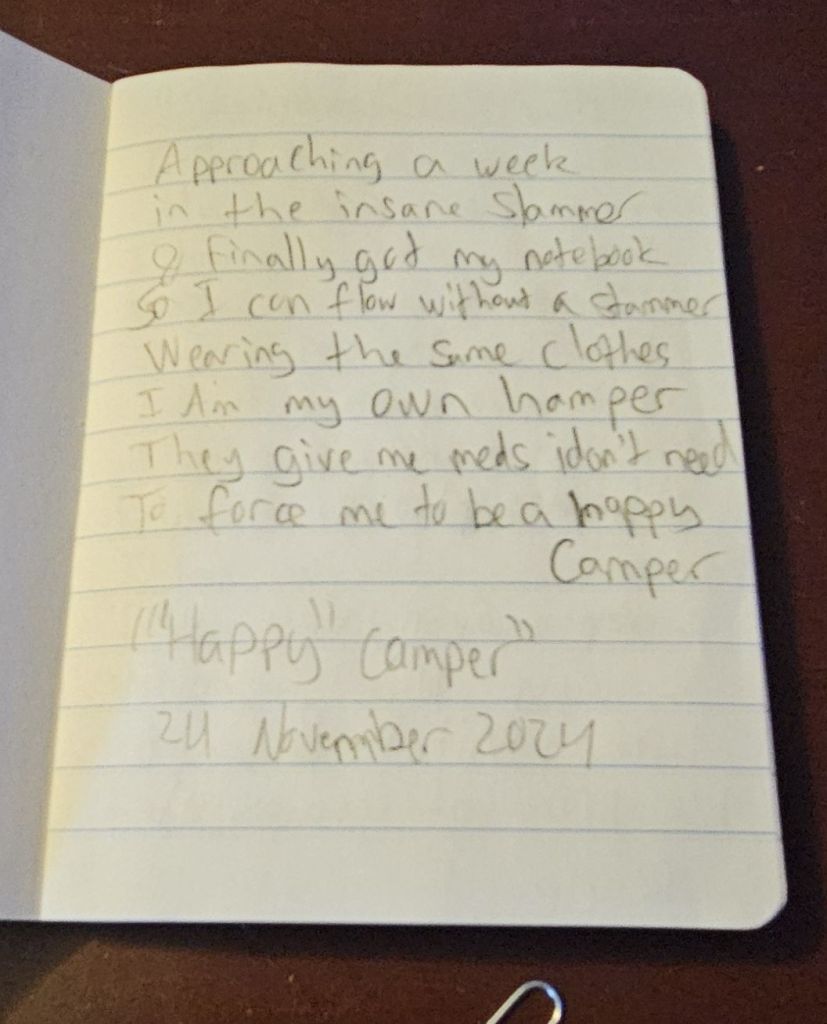 Approaching a week
in the insane slammer
& finally got my notebook
So I can flow without a stammer
Wearing the same clothes
I Am my own hamper
They give me meds i don't need
To force me to be a happy
Camper
""Happy" Camper"
24 November 2024